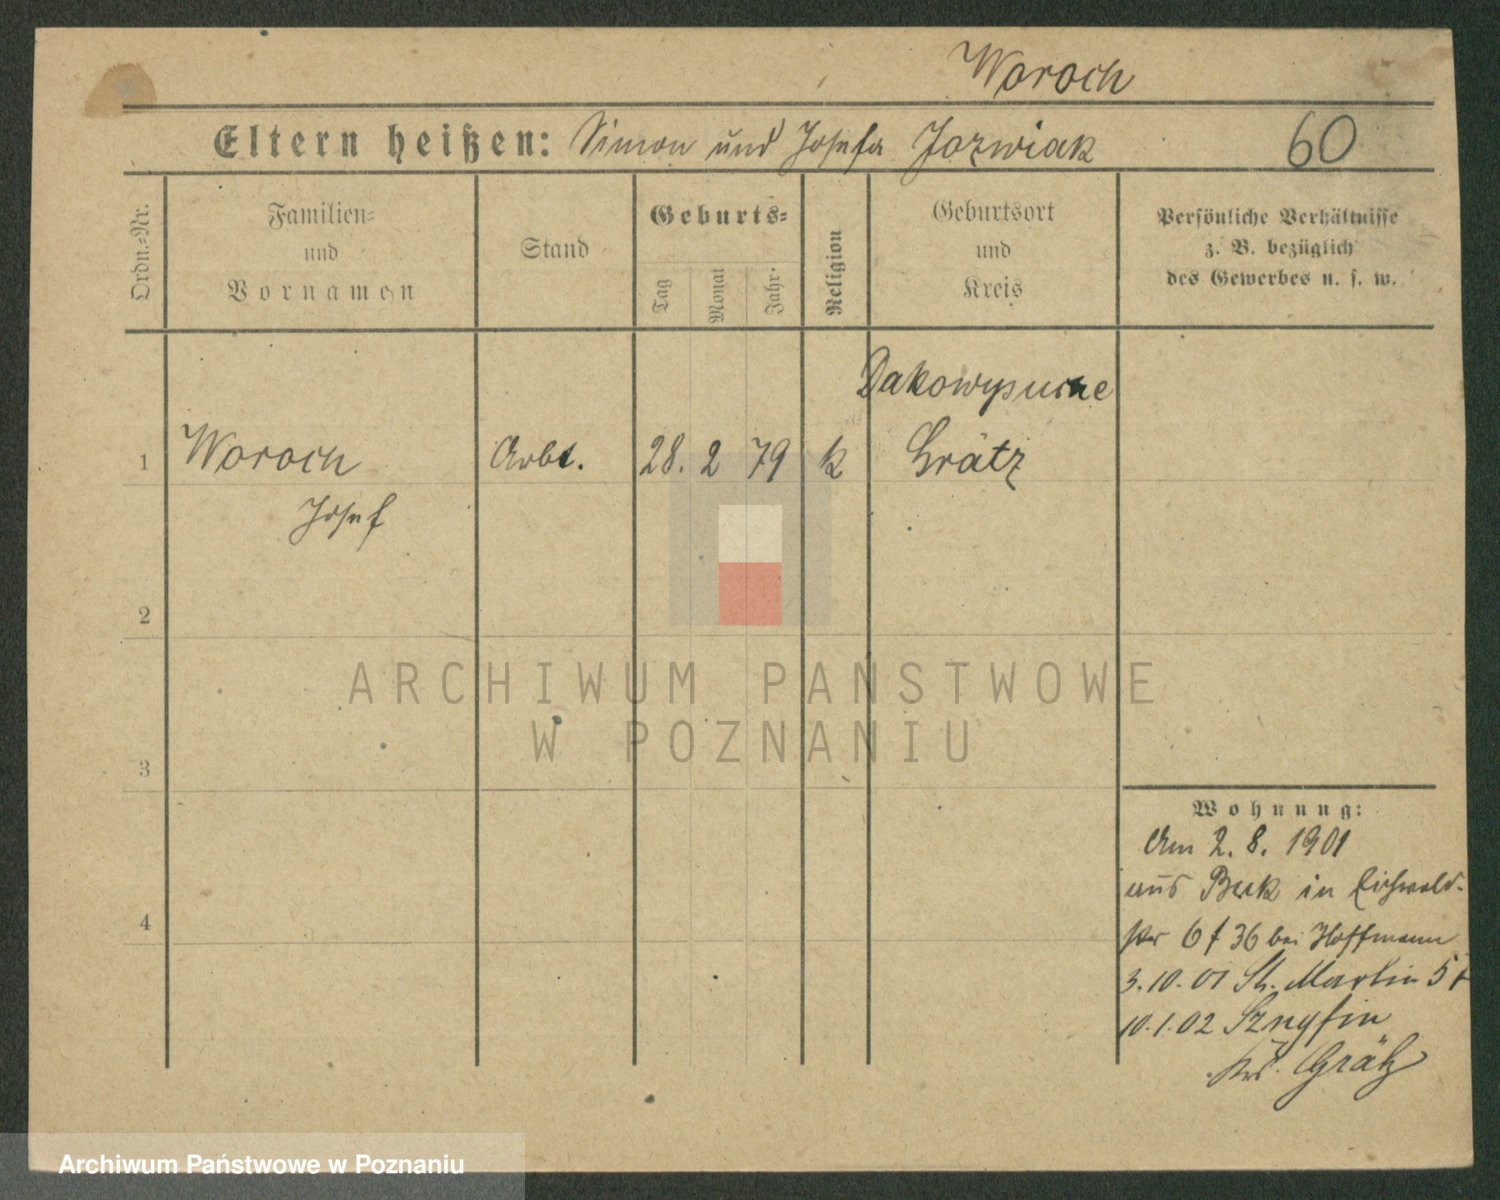 Woroch
Eltern heißen: Simon und Josefa Jozwiak 60
Ordn.-Nr.
Familien-
und
Vornamen
Stand
Geburts-
Tag
Monat
Jahr
Religion
Geburtsort
und
Kreis
Persönliche Verhältnisse
z. B. bezüglich
des Gewerbes u. s. w.
Dakowy
1 Woroch Arbt. 28. 2 79 k Grätz
Josef
2
ARCHIWUM PAŃSTWOWE
W POZNANIU
3
Wohnung:
Am 2. 8. 1901
aus Buk in Eichwald-
4
str 6 f 36 bei Hoffmann
3. 10. 01 St. Martin
10. 1. 02
Krs. Grätz
Archiwum Państwowe w Poznaniu